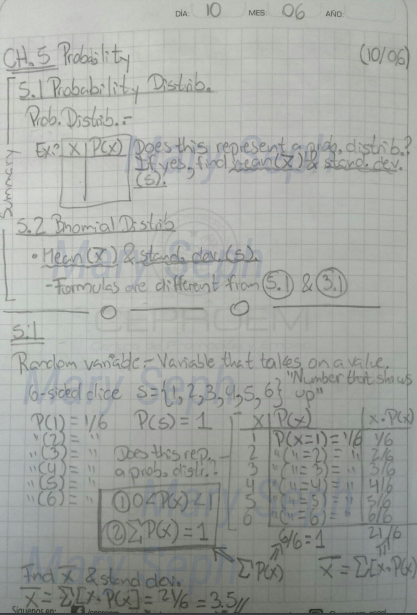 DÍA: 10 MES: 06 AÑO:
CH. 5 Probability (10/06)
5.1 Probability Distrib.
Prob. Distrib. =
Ex: X P(X) Does this represent a prob. distrib.?
If yes, find mean (X̄) & stand. dev.
(s).
Summary
5.2 Binomial Distrib
• Mean (X̄) & stand. dev. (s).
- Formulas are different from 5.1 & 3.1
5.1
Random variable = Variable that takes on a value.
6-sided dice S = {1, 2, 3, 4, 5, 6} "Number that shows up"
P(1) = 1/6 P(S) = 1
"(2) = "
"(3) = "
"(4) = "
"(5) = "
"(6) = "
Does this rep.
a prob. distr.?
① 0 ≤ P(X) ≤ 1
② ΣP(X) = 1
X P(X) X·P(X)
1 P(X=1) = 1/6 1/6
2 "("=2) = " 2/6
3 "("=3) = " 3/6
4 "("=4) = " 4/6
5 "("=5) = " 5/6
6 "("=6) = " 6/6
6/6 = 1 21/6
ΣP(X) X̄ = Σ[X·P(X)]
Find X̄ & stand dev.
X̄ = Σ[X·P(X)] = 21/6 = 3.5//
Mary Seph
CEPROEM